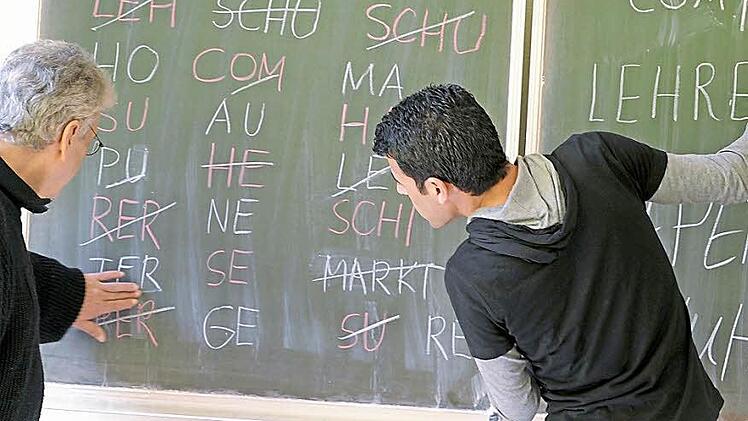 LEH SCHU SCHU
HO COM MA
SU AU H
PU HE LE
RER NE SCHI
TER SE MARKT
GE SU RE
LEHRE